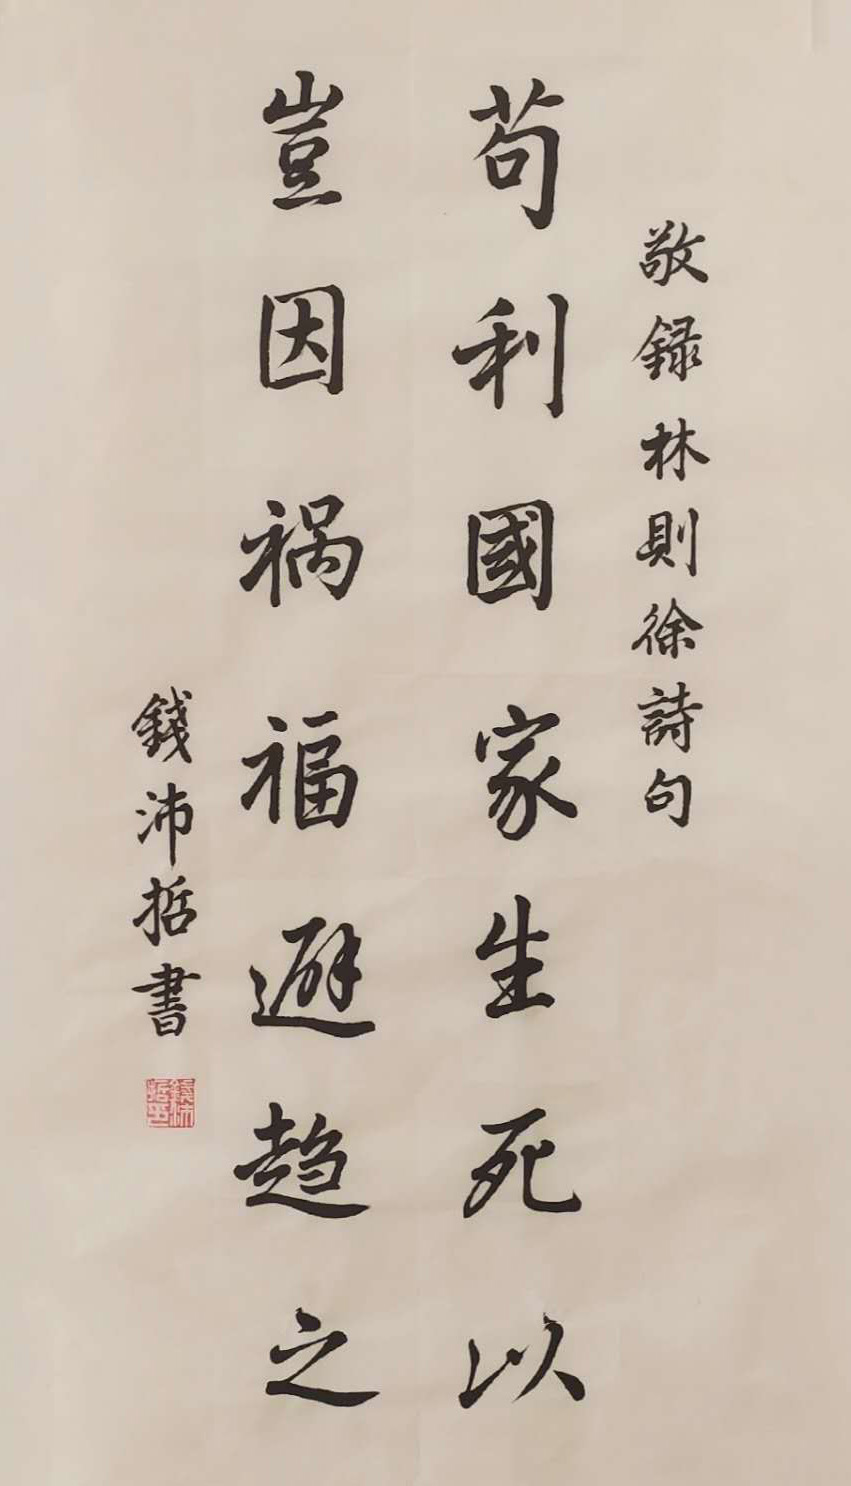 敬録林則徐詩句
苟利國家生死以
豈因祸福避趋之
錢沛哲書
錢沛哲印